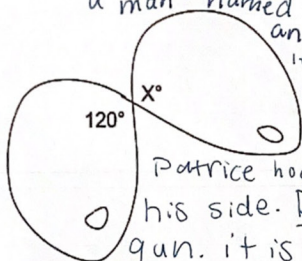 a man named
an
X°
120°
Patrice ho
his side.
gun. it is